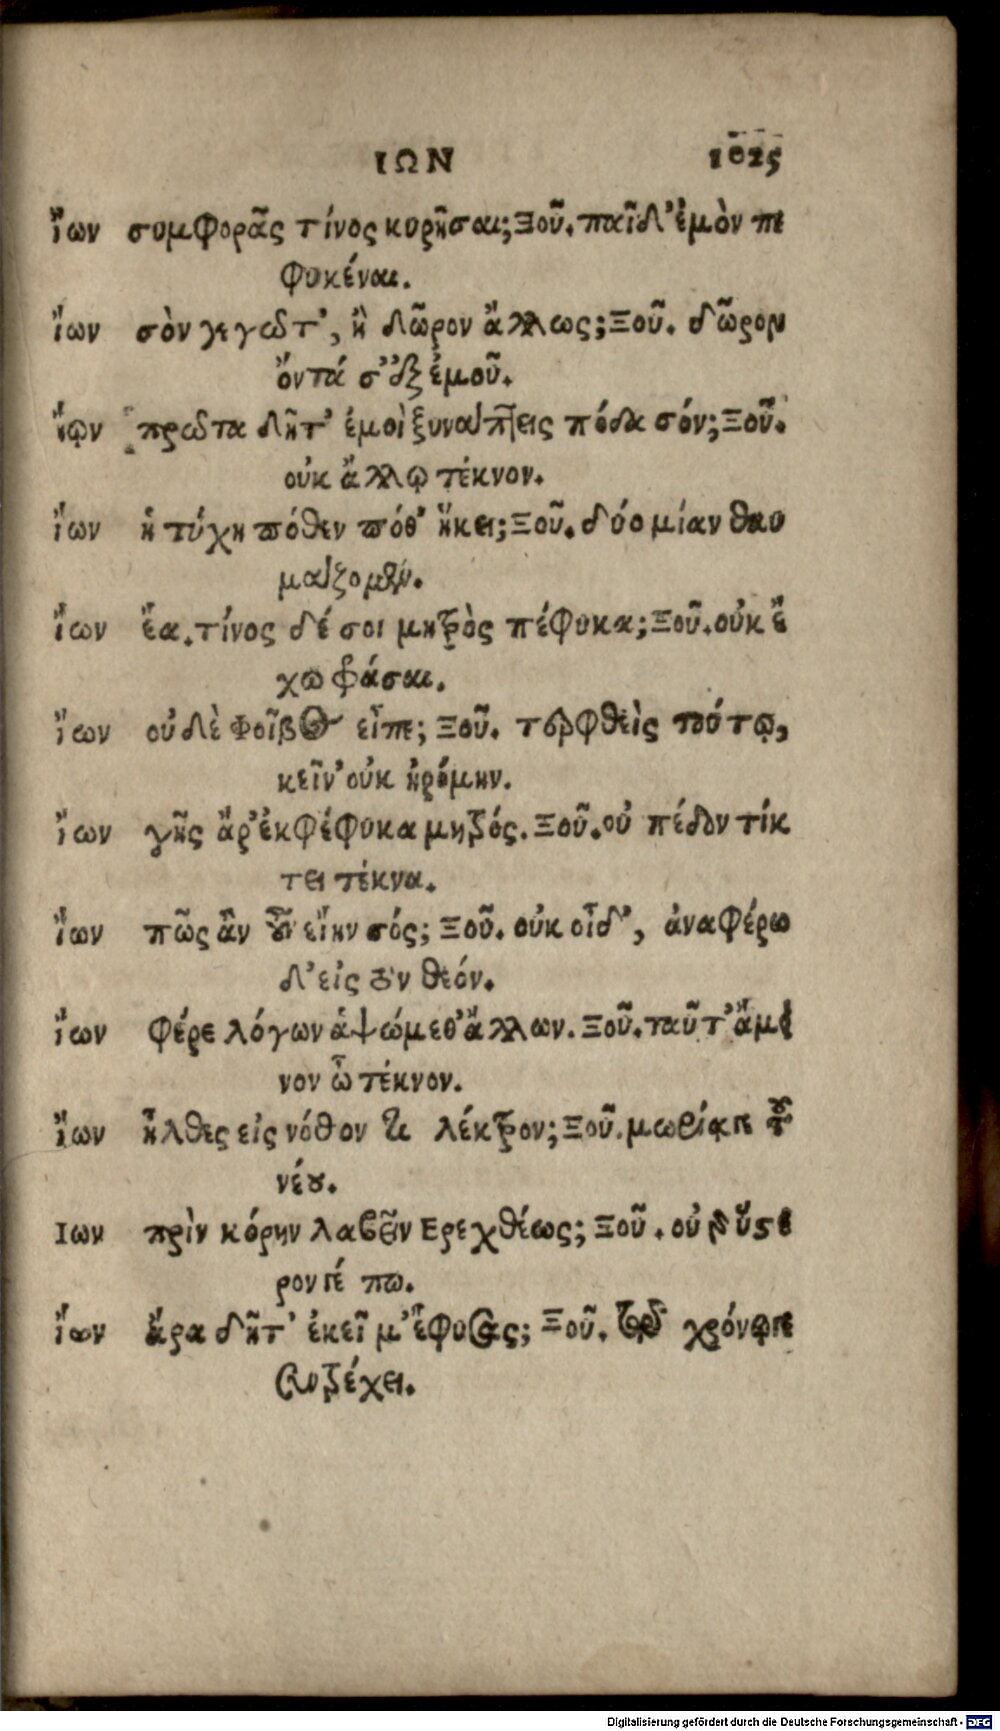 ΙΩΝ 1025
ἴων συμφορᾶς τίνος κυρῆσαι; Ξοῦ. παῖδ' ἐμὸν πε
φυκέναι.
ἴων σὸν γεγῶτ', ἢ δῶρον ἄλλως; Ξοῦ. δῶρον
ὄντα σ' ἐξ ἐμοῦ.
ἴων πρῶτα δῆτ' ἐμοὶ ξυνάπτεις πόδα σόν; Ξοῦ.
οὐκ ἄλλῳ τέκνον.
ἴων ἡ τύχη πόθεν πόθ' ἥκει; Ξοῦ. δύο μίαν θαυ
μάζομεν.
ἴων ἔα. τίνος δέ σοι μητρὸς πέφυκα; Ξοῦ. οὐκ ἔ
χω φάσαι.
ἴων οὐδὲ Φοῖβος εἶπε; Ξοῦ. τερφθεὶς τούτῳ,
κεῖν' οὐκ ἠρόμην.
ἴων γῆς ἄρ' ἐκφέφυκα μητρός. Ξοῦ. οὐ πέδον τίκ
τει τέκνα.
ἴων πῶς ἂν οὖν εἴην σός; Ξοῦ. οὐκ οἶδ', ἀναφέρω
δ' εἰς τὸν θεόν.
ἴων φέρε λόγων ἁψώμεθ' ἄλλων. Ξοῦ. ταῦτ' ἄμει
νον ὦ τέκνον.
ἴων ἦλθες εἰς νόθον τι λέκτρον; Ξοῦ. μωρίᾳ γε τοῦ
νέου.
Ιων πρὶν κόρην λαβεῖν Ερεχθέως; Ξοῦ. οὐ γὰρ ὕστε
ρον γέ πω.
ἴων ἄρα δῆτ' ἐκεῖ μ' ἔφυσας; Ξοῦ. τῷ χρόνῳ γε
συντρέχει.
Digitalisierung gefördert durch die Deutsche Forschungsgemeinschaft - DFG